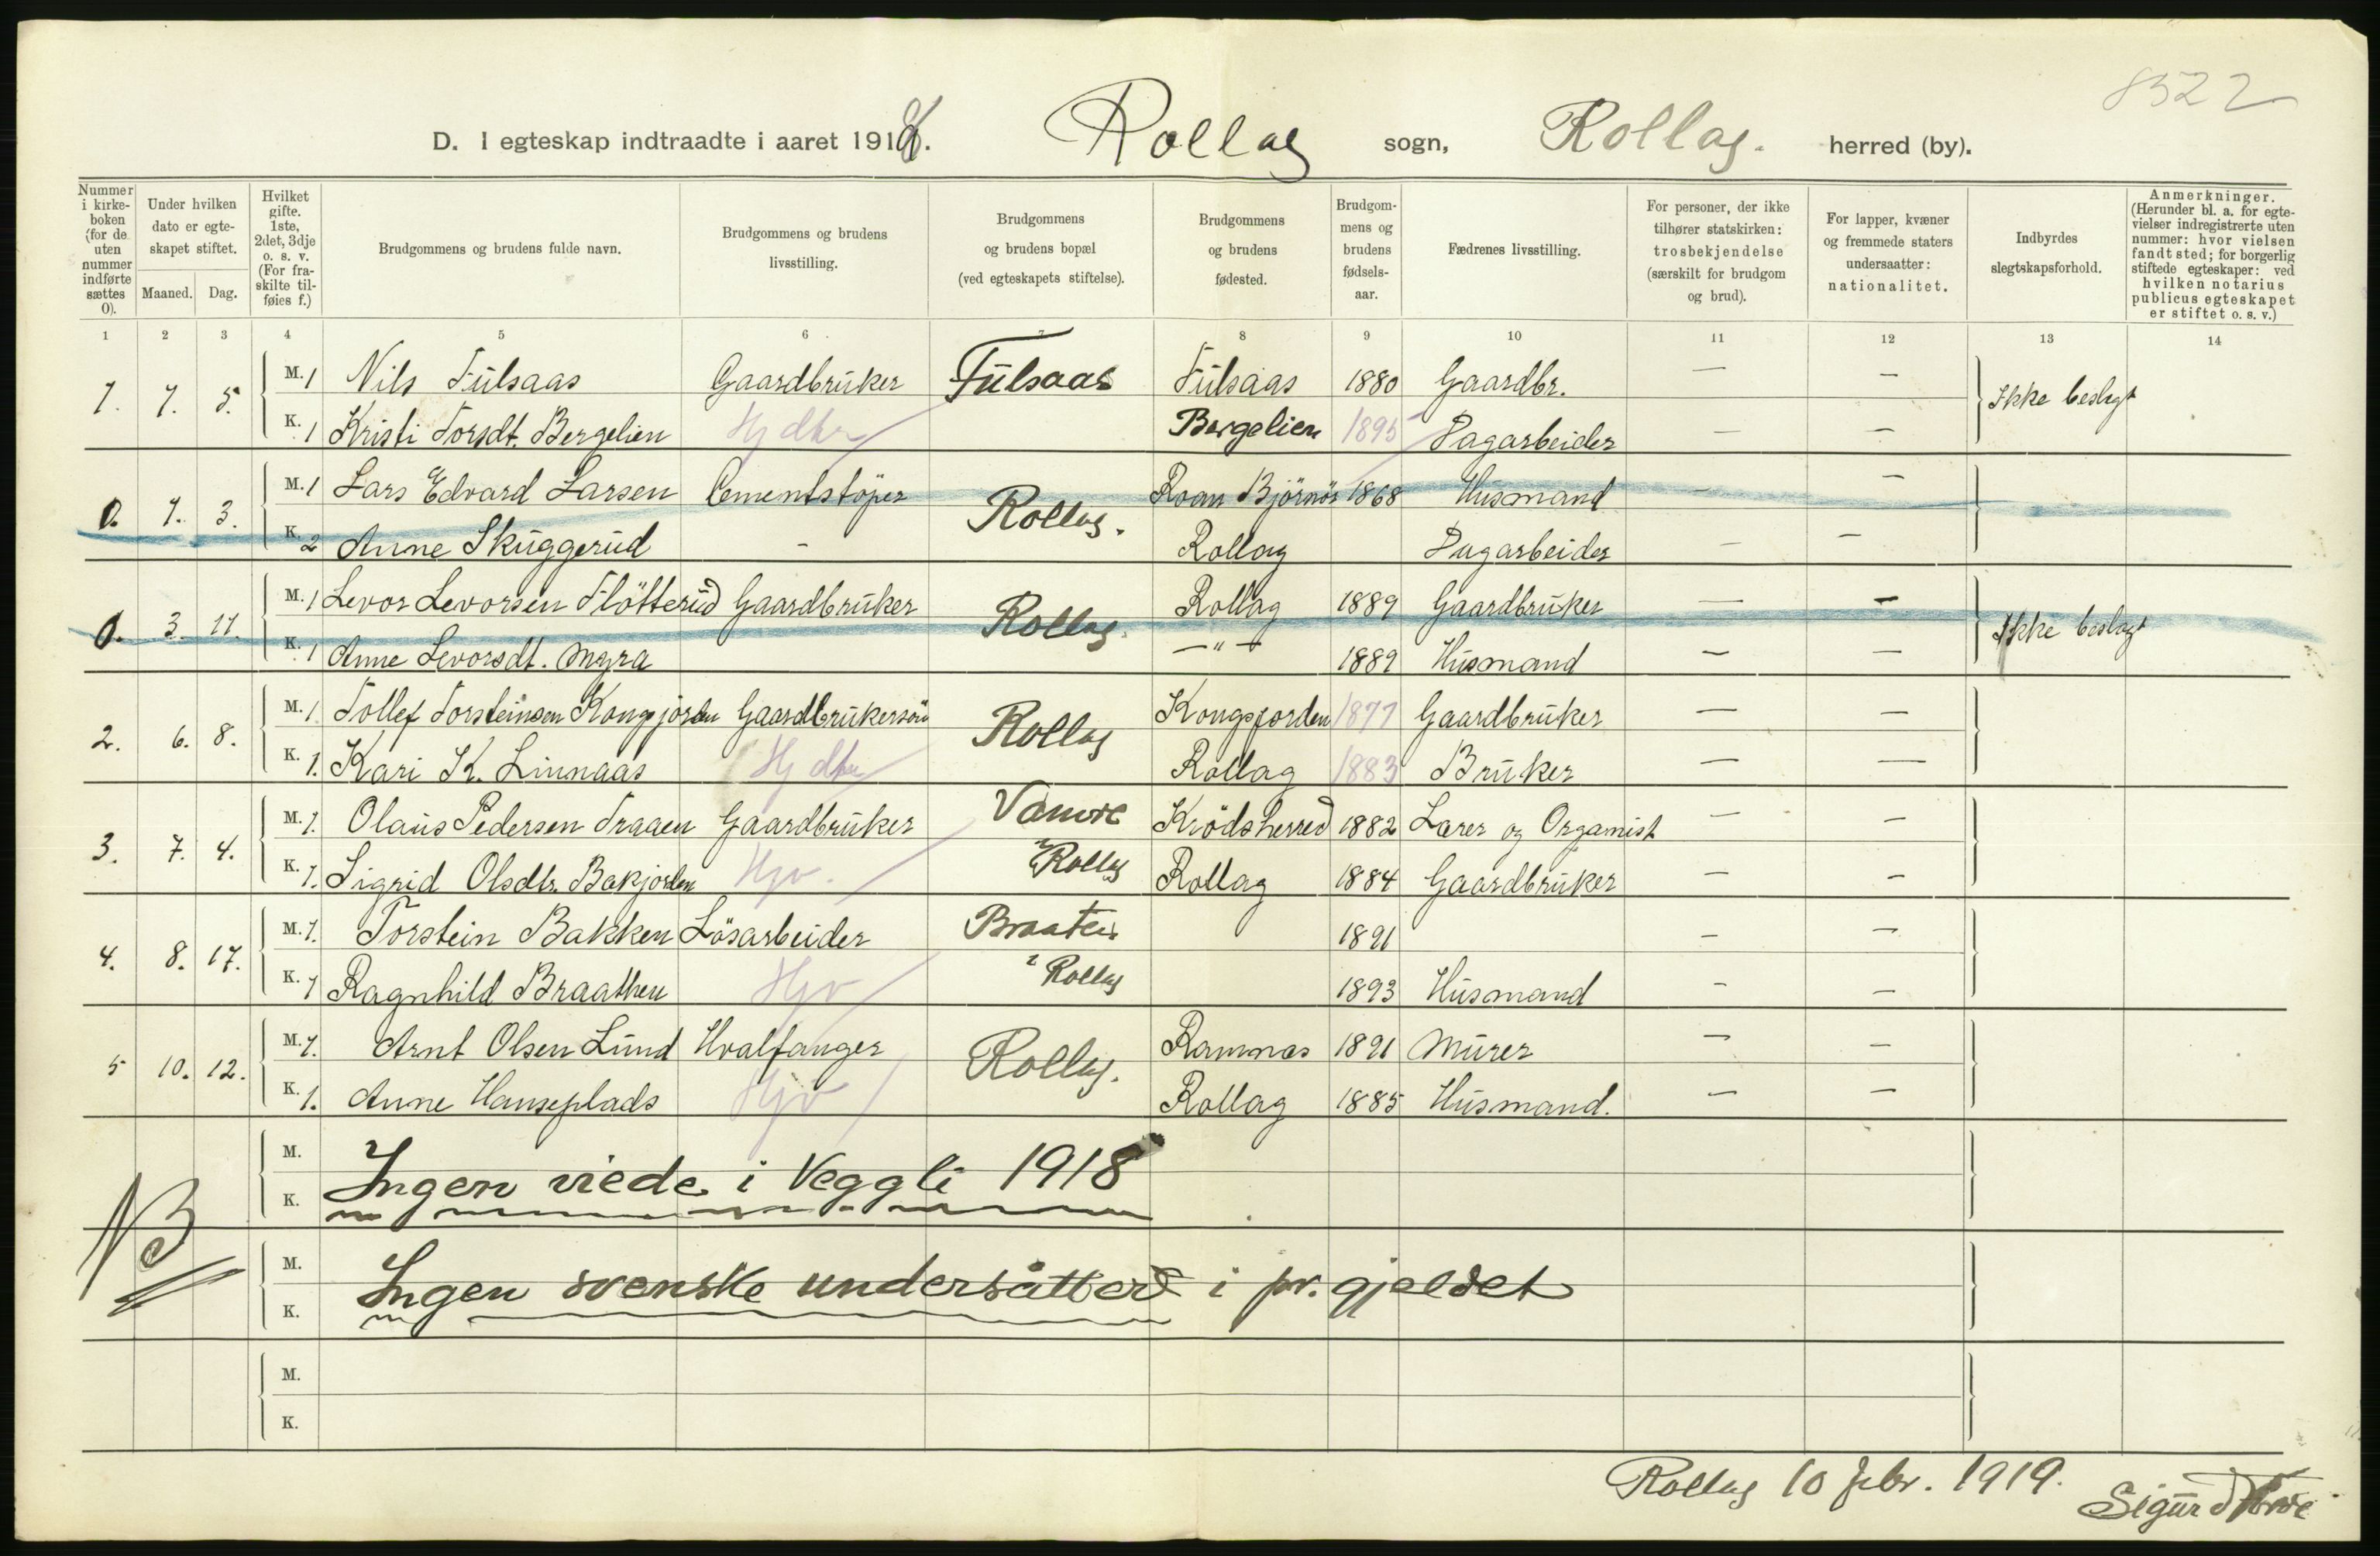 8522
D. I egteskap indtraadte i aaret 1918. Rollag sogn, Rollag. herred (by).
Nummer i kirkeboken (for de uten nummer indførte sættes 0).
Under hvilken dato er egteskapet stiftet.
Maaned. Dag.
Hvilket gifte. 1ste, 2det, 3dje o. s. v. (For fraskilte tilføies f.)
Brudgommens og brudens fulde navn.
Brudgommens og brudens livsstilling.
Brudgommens og brudens bopæl (ved egteskapets stiftelse).
Brudgommens og brudens fødested.
Brudgommens og brudens fødselsaar.
Fædrenes livsstilling.
For personer, der ikke tilhører statskirken: trosbekjendelse (særskilt for brudgom og brud).
For lapper, kvæner og fremmede staters undersaatter: nationalitet.
Indbyrdes slegtskapsforhold.
Anmerkninger. (Herunder bl. a. for egtevielser indregistrerte uten nummer: hvor vielsen fandt sted; for borgerlig stiftede egteskaper: ved hvilken notarius publicus egteskapet er stiftet o. s. v.)
1 2 3 4 5 6 7 8 9 10 11 12 13 14
1. 7. 5. M. 1 Nils Fulsaas Gaardbruker Fulsaas Fulsaas 1880 Gaardbr. — — Ikke beslegt
K. 1 Kristi Torsdt. Bergelien Hj dtr Bergelien 1895 Dagarbeider — —
0. 1. 3. M. 1 Lars Edvard Larsen Cementstöper Rollag. Roan Björnör 1868 Husmand — —
K. 2 Anne Skuggerud - Rollag Dagarbeider — —
0. 3. 11. M. 1 Levor Levorsen Flötterud Gaardbruker Rollag. Rollag 1889 Gaardbruker — — Ikke beslegt
K. 1 Anne Levorsdt. Myra — " — 1889 Husmand — —
2. 6. 8. M. 1 Tollef Torsteinsen Kongsjorden Gaardbrukersön Rollag Kongsjorden 1877 Gaardbruker — —
K. 1. Kari K. Linnaas Hj dtr Rollag 1883 Bruker — —
3. 7. 4. M. 1. Olaus Pedersen Traaen Gaardbruker Vamre Krödsherred 1882 Lærer og Organist — —
K. 1. Sigrid Olsdtr. Bakjorden Hjv. i Rollag Rollag 1884 Gaardbruker — —
4. 8. 17. M. 1. Torstein Bakken Lösarbeider Braaten 1891 — —
K. 1 Ragnhild Braathen Hjv i Rollag 1893 Husmand — —
5 10. 12. M. 1. Arnt Olsen Lund Hvalfanger Rollag. Ramnes 1891 Murer — —
K. 1. Anne Hanseplads Hjv Rollag 1885 Husmand. — —
M.
K. Ingen viede i Veggli 1918
NB
M.
K. Ingen svenske undersåtter i pr.gjeldet
M.
K.
Rollag 10 febr. 1919.
Sigurd